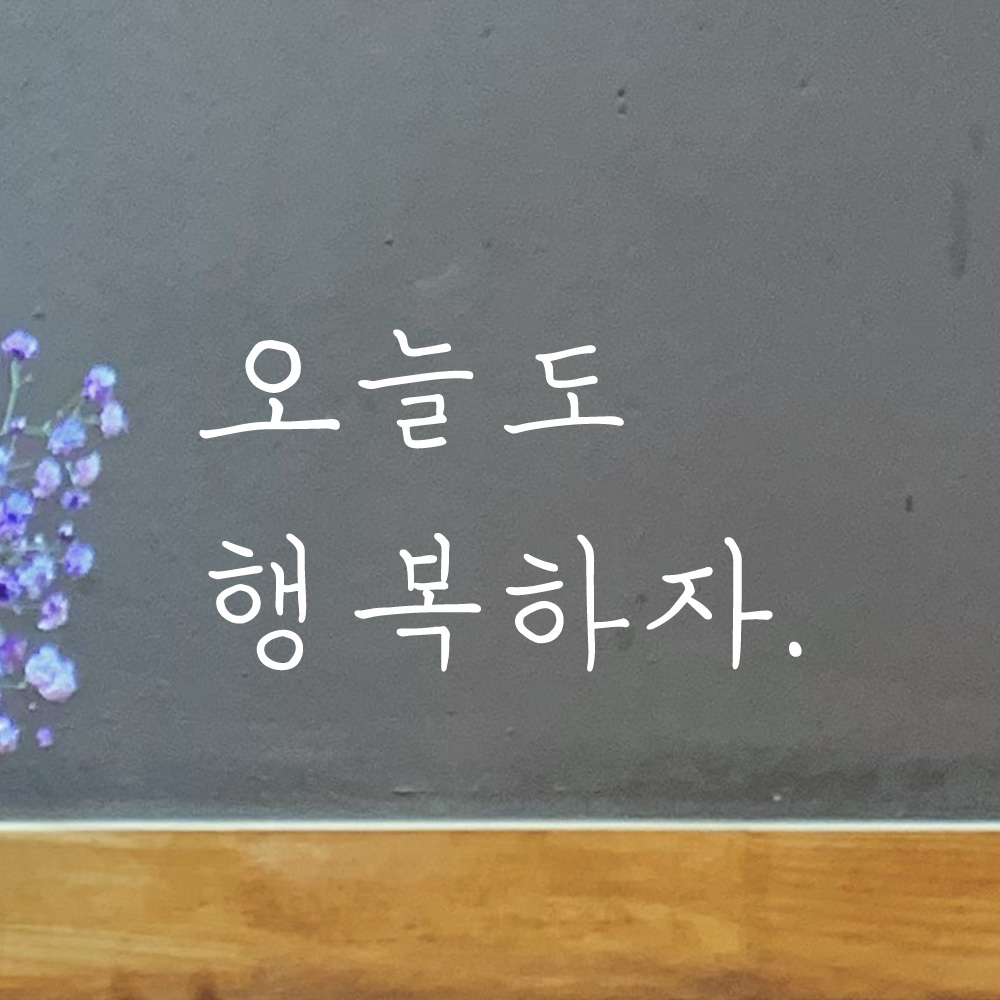 오늘도
행복하자.